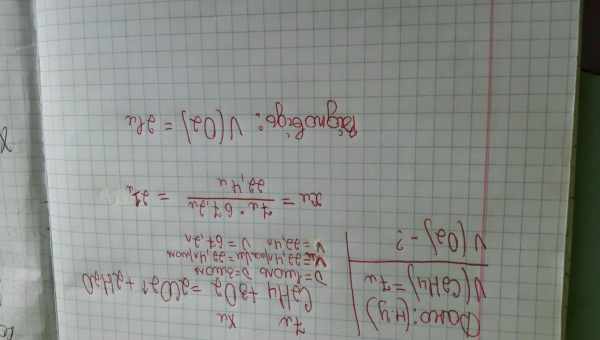 Дано: (н.у)
V(C2H4) = 7л
V(O2) - ?
7л хл
C2H4 + 3O2 = 2CO2↑ + 2H2O
ν=1моль ν=3моль
Vм=22,4л/моль Vм=22,4л/моль
V=22,4л V=67,2л
хл = 7л · 67,2л / 22,4л = 21л
Відповідь: V(O2) = 21л